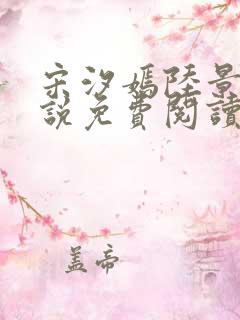 宋汐媽陸景
說免費閱讀
盖帝